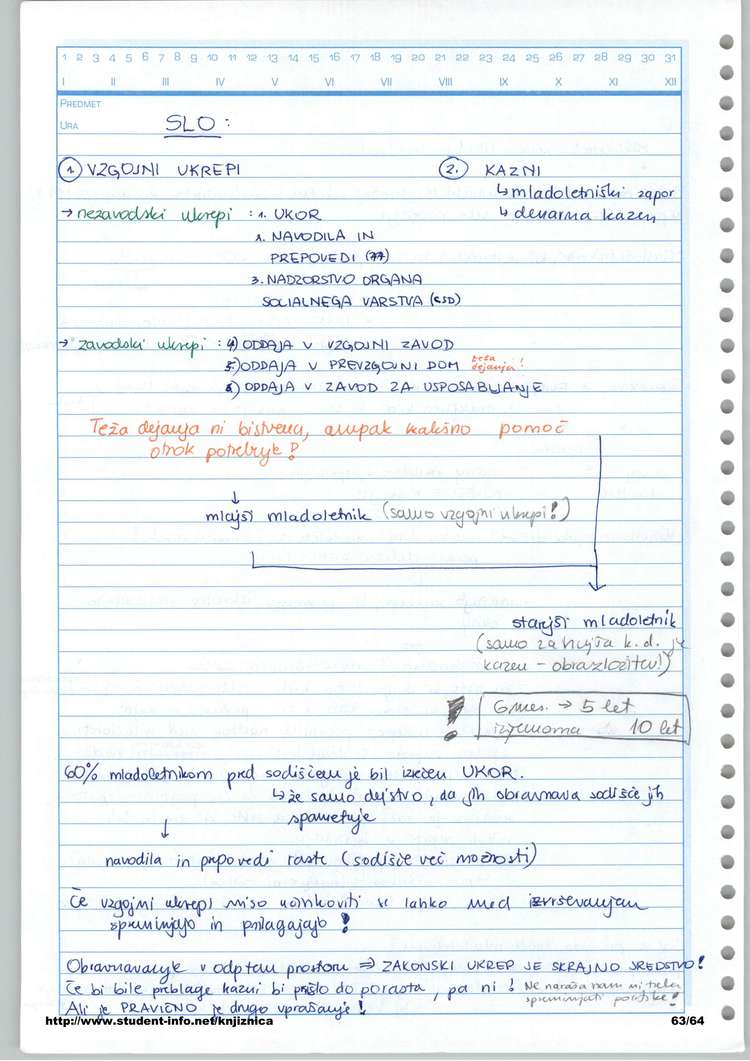 1 2 3 4 5 6 7 8 9 10 11 12 13 14 15 16 17 18 19 20 21 22 23 24 25 26 27 28 29 30 31
I II III IV V VI VII VIII IX X XI XII
PREDMET
URA SLO:
1 VZGOJNI UKREPI 2. KAZNI
↳ mladoletniški zapor
→ nezavodski ukrepi : 1. UKOR ↳ denarna kazen
1. NAVODILA IN
PREPOVEDI (77)
3. NADZORSTVO ORGANA
SOCIALNEGA VARSTVA (CSD)
→ zavodski ukrepi : 4) ODDAJA V VZGOJNI ZAVOD
5.) ODDAJA V PREVZGOJNI DOM teža dejanja!
6) ODDAJA V ZAVOD ZA USPOSABLJANJE
Teža dejanja ni bistvena, ampak kakšno pomoč
otrok potrebuje?
↓
mlajši mladoletnik (samo vzgojni ukrepi!)
starejši mladoletnik
(samo za hujša k.d. je
kazen - obrazložitev!)
! 6 mes. → 5 let
izjemoma 10 let
60% mladoletnikom pred sodiščem je bil izrečen UKOR.
↳ že samo dejstvo, da jih obravnava sodišče jih
spametuje
↓
navodila in prepovedi raste (sodišče več možnosti)
Če vzgojni ukrepi niso učinkoviti se lahko med izvrševanjem
spreminjajo in prilagajajo!
Obravnavanje v odprtem prostoru ⇒ ZAKONSKI UKREP JE SKRAJNO SREDSTVO!
Če bi bile preblage kazni bi prišlo do porasta, pa ni! Ne narašča nam ni treba
spreminjati politike!
Ali je PRAVIČNO je drugo vprašanje!
http://www.student-info.net/knjiznica 63/64